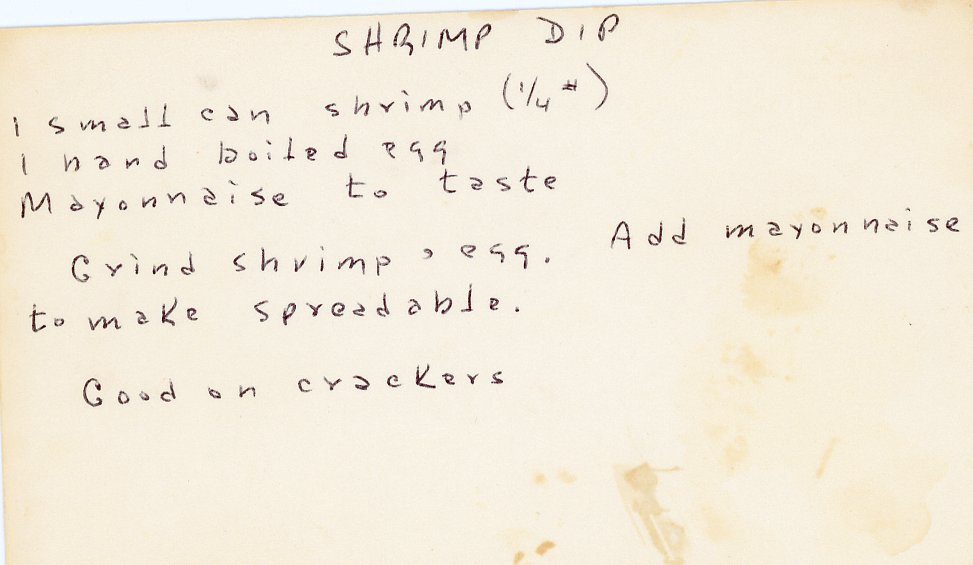 SHRIMP DIP
1 small can shrimp (1/4 #)
1 hard boiled egg
Mayonnaise to taste
Grind shrimp, egg. Add mayonnaise
to make spreadable.
Good on crackers